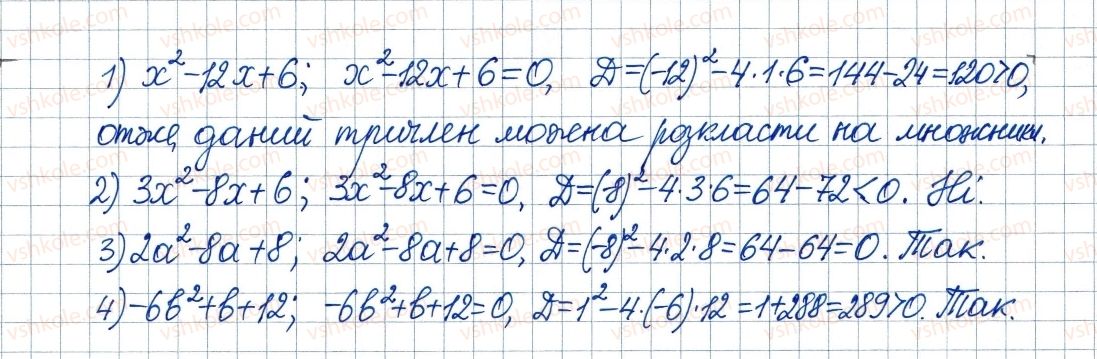 1) x² - 12x + 6; x² - 12x + 6 = 0, D = (-12)² - 4·1·6 = 144 - 24 = 120 > 0,
отже, даний тричлен можена розкласти на множники.
2) 3x² - 8x + 6; 3x² - 8x + 6 = 0, D = (-8)² - 4·3·6 = 64 - 72 < 0. Ні.
3) 2a² - 8a + 8; 2a² - 8a + 8 = 0, D = (-8)² - 4·2·8 = 64 - 64 = 0. Так.
4) -6b² + b + 12; -6b² + b + 12 = 0, D = 1² - 4·(-6)·12 = 1 + 288 = 289 > 0. Так.